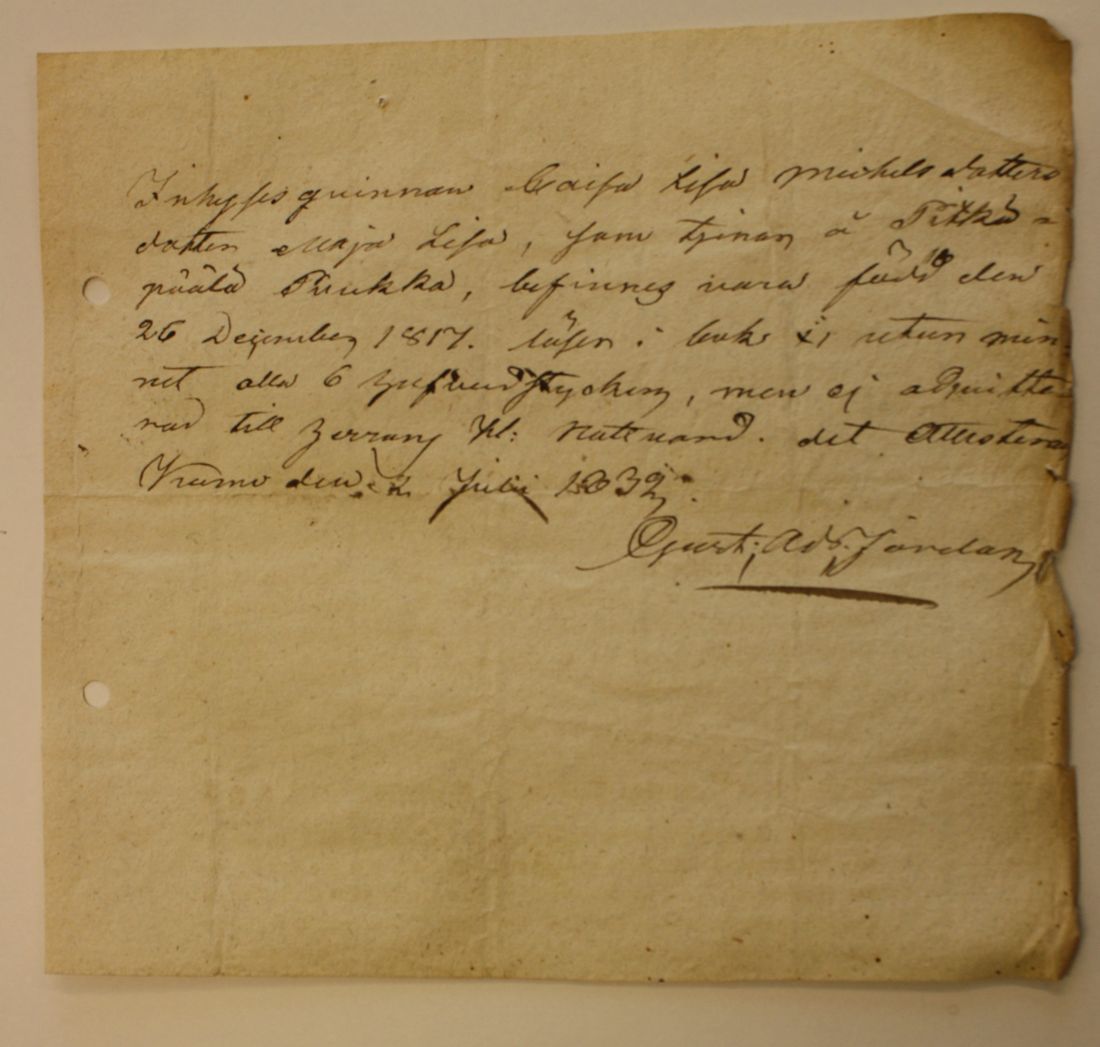 Inhyses quinnan Caisa Lisa Michelsdotters
dotter Maja Lisa, som tjenar å Pitkä=
päälä Prukka, befinnes vara född den
26 December 1817. läser i bok utan min=
net alla 6 hufvudstycken, men ej admitte=
rad till Herrans H: Nattvard. det Attesterar
Kumo den 2 Julii 1832.
Gust: Ad: Jordan